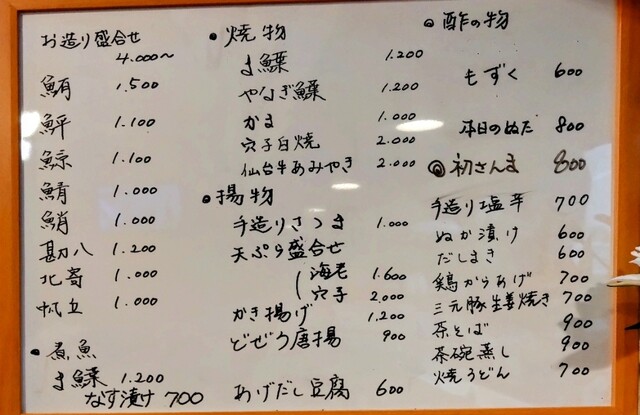 お造り盛合せ
4.000~
鮪 1.500
鮃 1.100
鯨 1.100
鯖 1.000
鮹 1.000
勘八 1.200
北寄 1.000
帆立 1.000
●煮魚
ま鰈 1.200
なす漬け 700
●焼物
ま鰈 1.200
やなぎ鰈 1.200
かま 1.000
穴子白焼 2.000
仙台牛あみやき 2.000
●揚物
手造りさつま 1.000
天ぷら盛合せ
海老 1.600
穴子 2.000
かき揚げ 1.200
どぜう唐揚 900
あげだし豆腐 600
◎酢の物
もずく 600
本日のぬた 800
◎初さんま 800
手造り塩辛 700
ぬか漬け 600
だしまき 600
鶏からあげ 700
三元豚生姜焼き 700
茶そば 900
茶碗蒸し 900
焼うどん 700